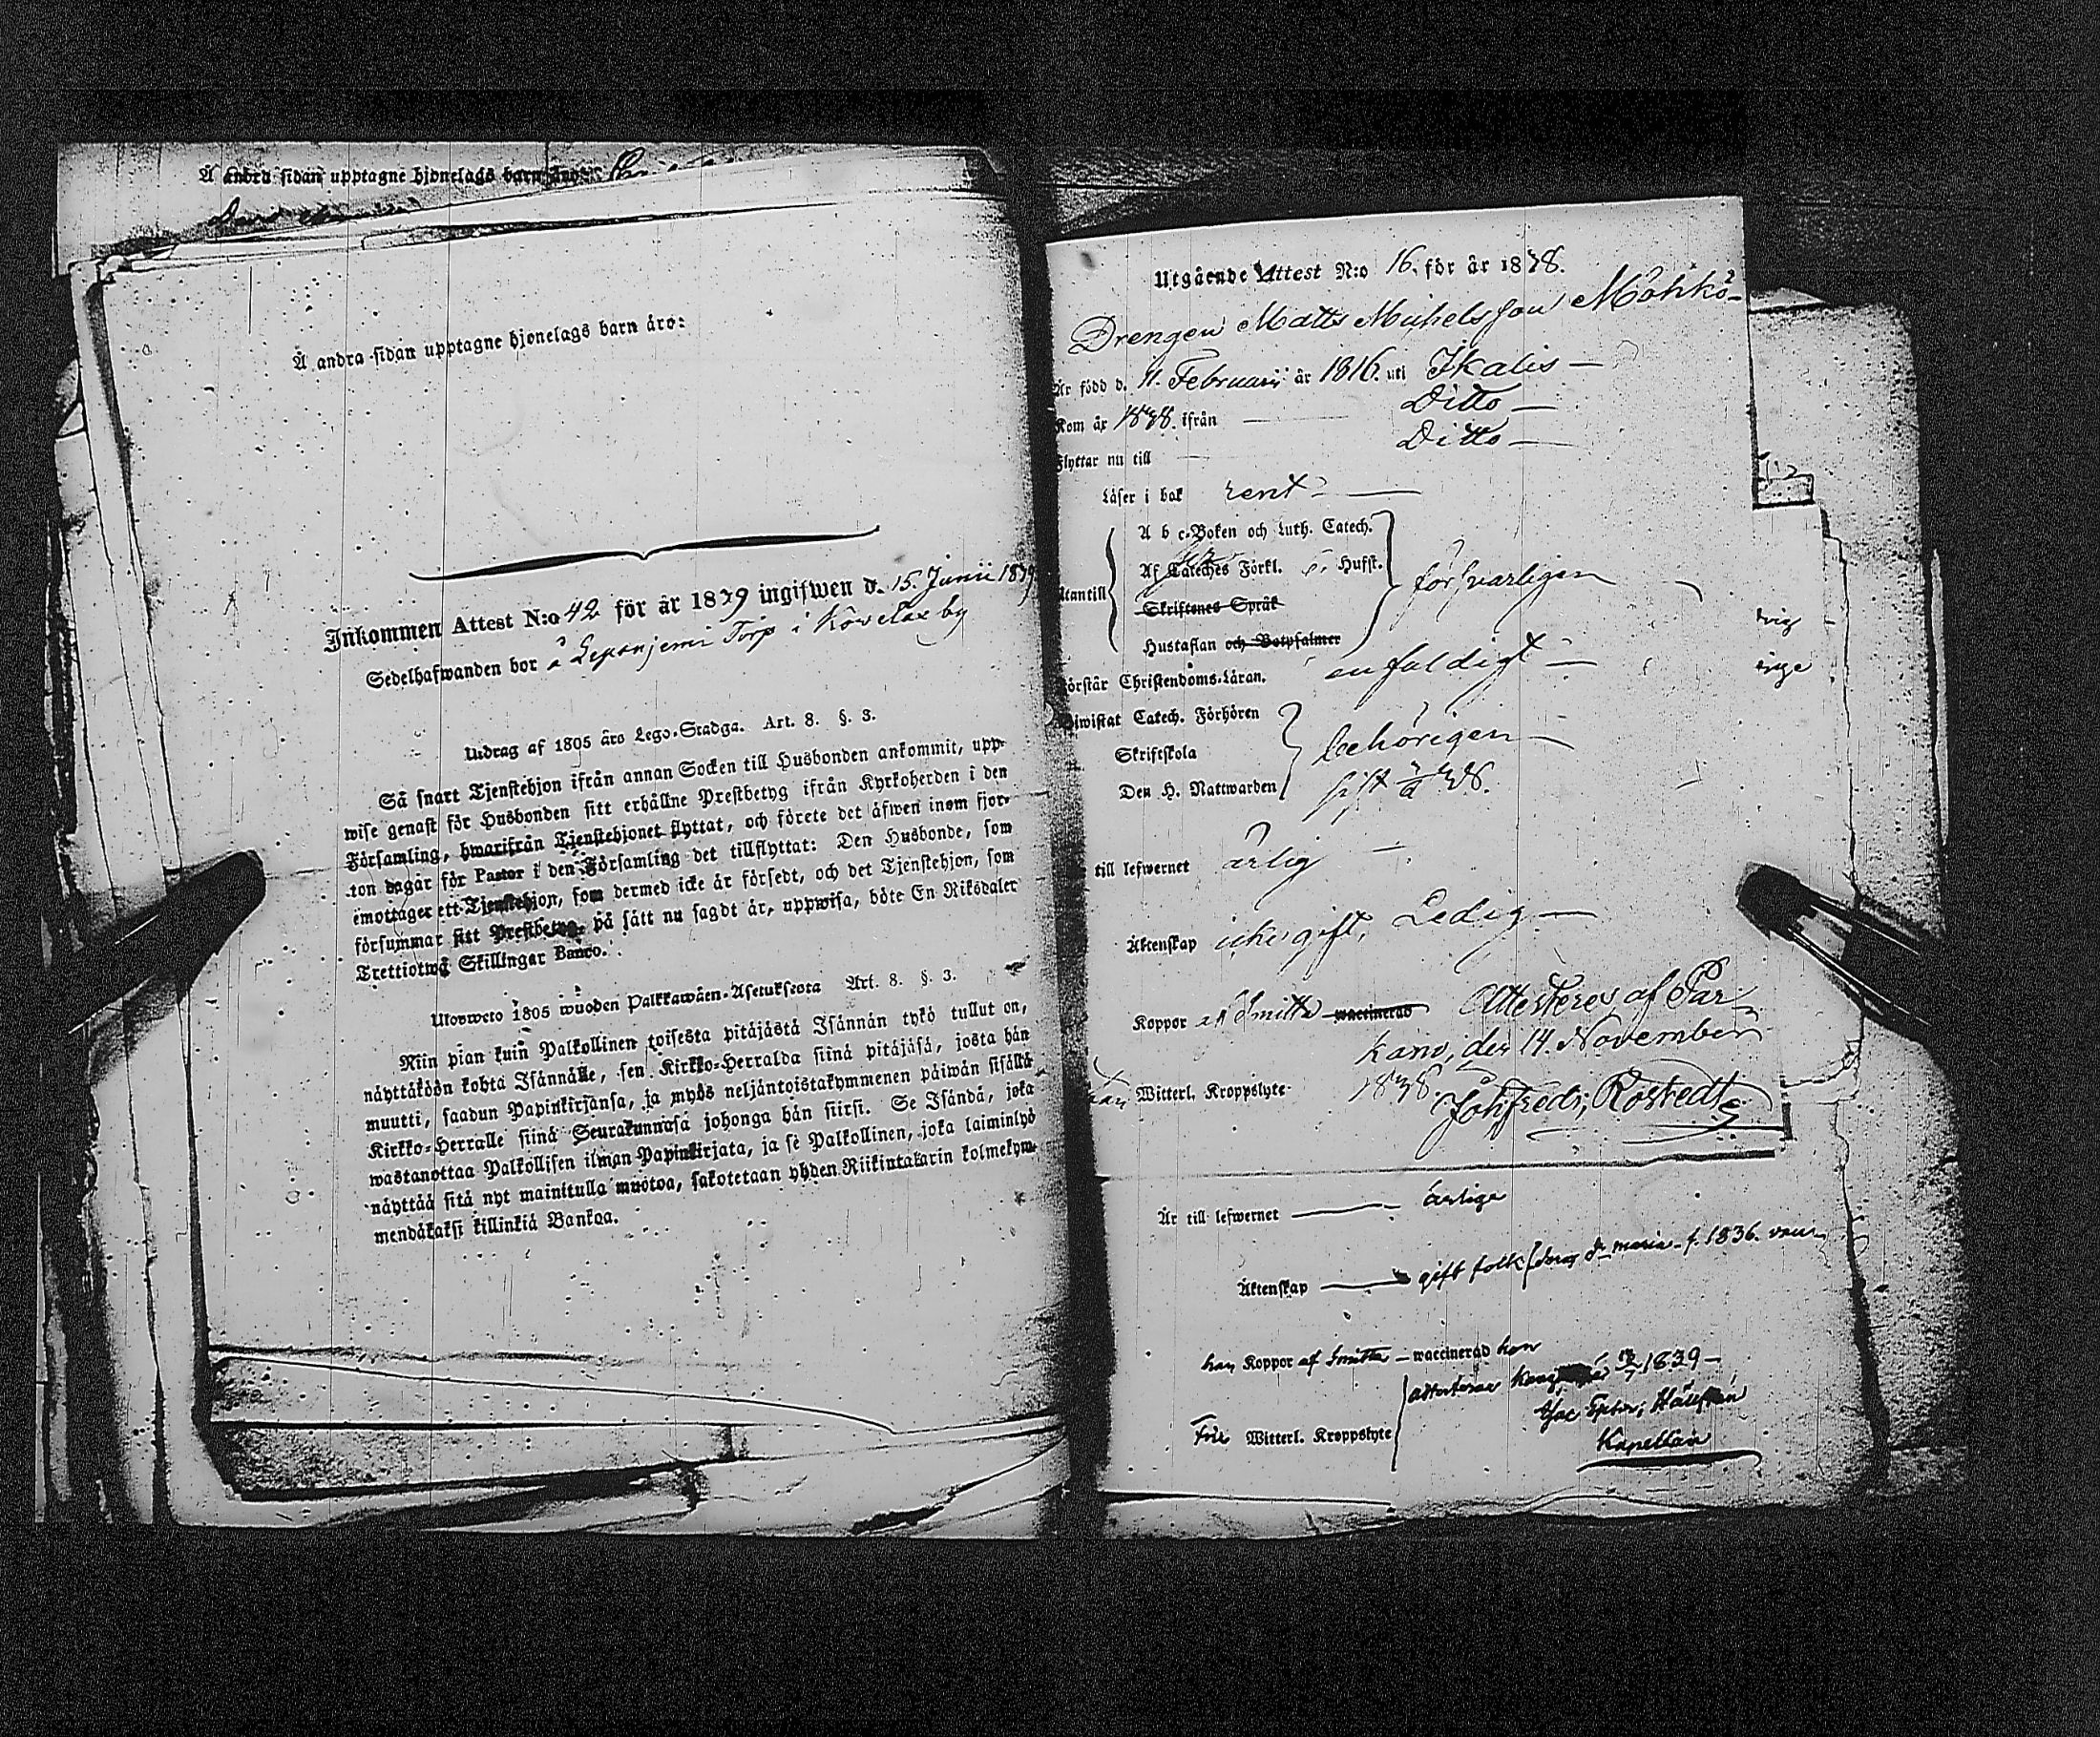 Å andra sidan upptagne hjonelags barn äro:
Å andra sidan upptagne hjonelags barn äro:
Inkommen Attest N:o 42 för år 1839 ingifwen d. 15. Junii 1839
Sedelhafwanden bor å Lepänjemi Torp i Köwelax by
Utdrag af 1805 års Lego-Stadga. Art. 8. §. 3.
Så snart Tjenstehjon ifrån annan Socken till Husbonden ankommit, upp-
wise genast för Husbonden sitt erhållne Prestbetyg ifrån Kyrkoherden i den
Församling, hwarifrån Tjenstehjonet flyttat, och förete det äfwen inom fjor-
ton dagar för Pastor i den Församling det tillflyttat: Den Husbonde, som
emottager ett Tjenstehjon, som dermed icke är försedt, och det Tjenstehjon, som
försummar sitt Prestbetyg, på sätt nu sagdt är, uppwisa, böte En Riksdaler
Trettiotwå Skillingar Banco.
Ulosweto 1805 wuoden Palkkawäen-Asetuksesta Art. 8. §. 3.
Niin pian kuin Palkollinen toisesta pitäjästä Isännän tykö tullut on,
näyttäköön kohta Isännälle, sen Kirkko-Herralda siinä pitäjäsä, josta hän
muutti, saadun Papinkirjansa, ja myös neljäntoistakymmenen päiwän sisällä
Kirkko-Herralle siinä Seurakunnasa johonga hän siirsi. Se Isändä, joka
wastanottaa Palkollisen ilman Papinkirjata, ja se Palkollinen, joka laiminlyö
näyttää sitä nyt mainitulla muotoa, sakotetaan yhden Riikintalarin kolmekym-
mendäkaksi killinkiä Bankoa.
Utgående Attest N:o 16. för år 1838.
Drengen Matts Michelsson Möhkö
Är född d. 11. Februarii år 1816. uti Ikalis
Kom år 1838. ifrån Ditto
Flyttar nu till Ditto
Läser i bok rent
A b c-Boken och Luth. Catech.
Af Cateches Förkl. Hufst.
Utantill försvarligen
Skriftenes Språk
Hustaflan och Botpsalmer
Förstår Christendoms-Läran. enfaldigt
Biwistat Catech. Förhören
Skriftskola behörigen
Den H. Nattwarden sist 38.
till lefwernet ärlig
Äktenskap icke gift, Ledig
Koppor af Smitta waccinerad Attesteres af Par
kano, den 14. November
Witterl. Kroppslyte 1838.
Joh. Fredr. Rostedt
Är till lefwernet ärlige
Äktenskap gift folk maria f. 1836.
han Koppor af smitta waccinerad hon
attesterar 1839
Frie Witterl. Kroppslyte
Kapellan